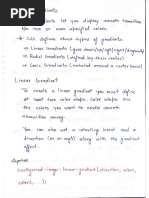 Gradients
Gradients let you display smooth transitions
two or more specified colors.
* CSS defines three types of gradients:
→ Linear Gradients (goes down/up/left/right/diagonally)
→ Radial Gradients (defined by their center)
→ Conic Gradients (rotated around a center point)
Linear Gradient
To create a linear gradient you must define
at least two color stops. Color stops are
the colors you want to render smooth
transitions among.
You can also set a starting point and a
direction (or an angle) along with the gradient
effect.
Syntax
background-image: linear-gradient(direction, color1,
color2, ...);